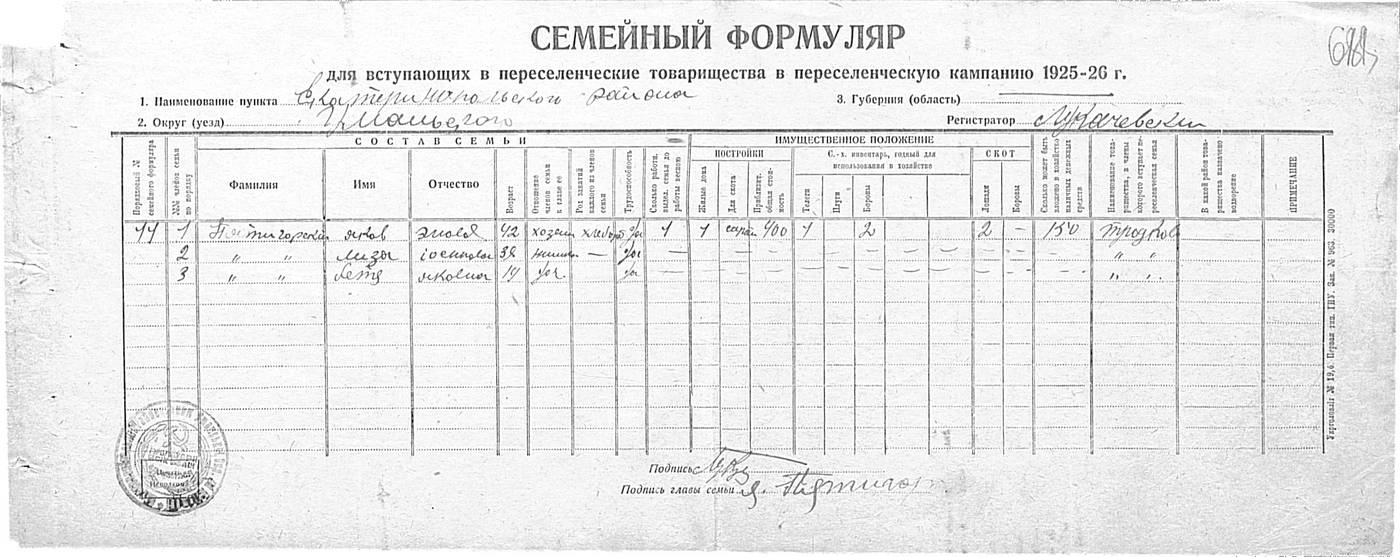 СЕМЕЙНЫЙ ФОРМУЛЯР
для вступающих в переселенческие товарищества в переселенческую кампанию 1925-26 г.
1. Наименование пункта Екатеринопольского района
3. Губерния (область)
2. Округ (уезд) Уманьского
Регистратор Лукачевский
СОСТАВ СЕМЬИ
ИМУЩЕСТВЕННОЕ ПОЛОЖЕНИЕ
Порядковый № семейного формуляра
№№ членов семьи по порядку
Фамилия
Имя
Отчество
Возраст
Отношение членов семьи к главе ее
Род занятий каждого из членов семьи
Трудоспособность
Сколько работн. выдел. семья до работы весною
ПОСТРОЙКИ
Жилые дома
Для скота
Приблизит. общая стоимость
С.-х. инвентарь, годный для использования в хозяйстве
Телеги
Плуги
Бороны
СКОТ
Лошади
Коровы
Сколько может быть вложено в хозяйство наличных денежных средств
Наименование товарищества, в члены которого вступает переселенческая семья
В какой район товарищества назначено водворение
ПРИМЕЧАНИЕ
1 Пятигорский яков 42 хозяин да 1 1 сарай 400 1 2 2 – 150
2 „ „ лиза 38 — да — — — — — — — — „ „
3 „ „ яковна 19 доч. да — — — — — — — — „ „
Подпись
Подпись главы семьи Я. Пятигор
Укрголовліт № 19,6. Первая тип. ГИУ. Зак. № 963. 20000